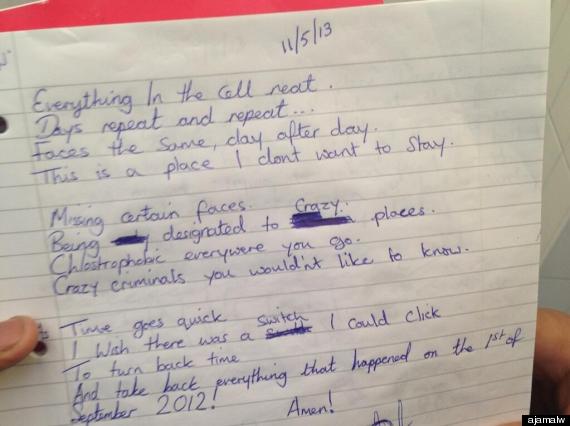 11/5/13
Everything In the Cell neat.
Days repeat and repeat...
Faces the same, day after day.
This is a place I dont want to stay.
Missing certain faces.
Being designated to Crazy. places.
Chlostrophobic everywere you go.
Crazy criminals you wouldn't like to know.
Time goes quick
I Wish there was a switch I could click
To turn back time
And take back everything that happened on the 1st of
September 2012!
Amen!
ajamalw